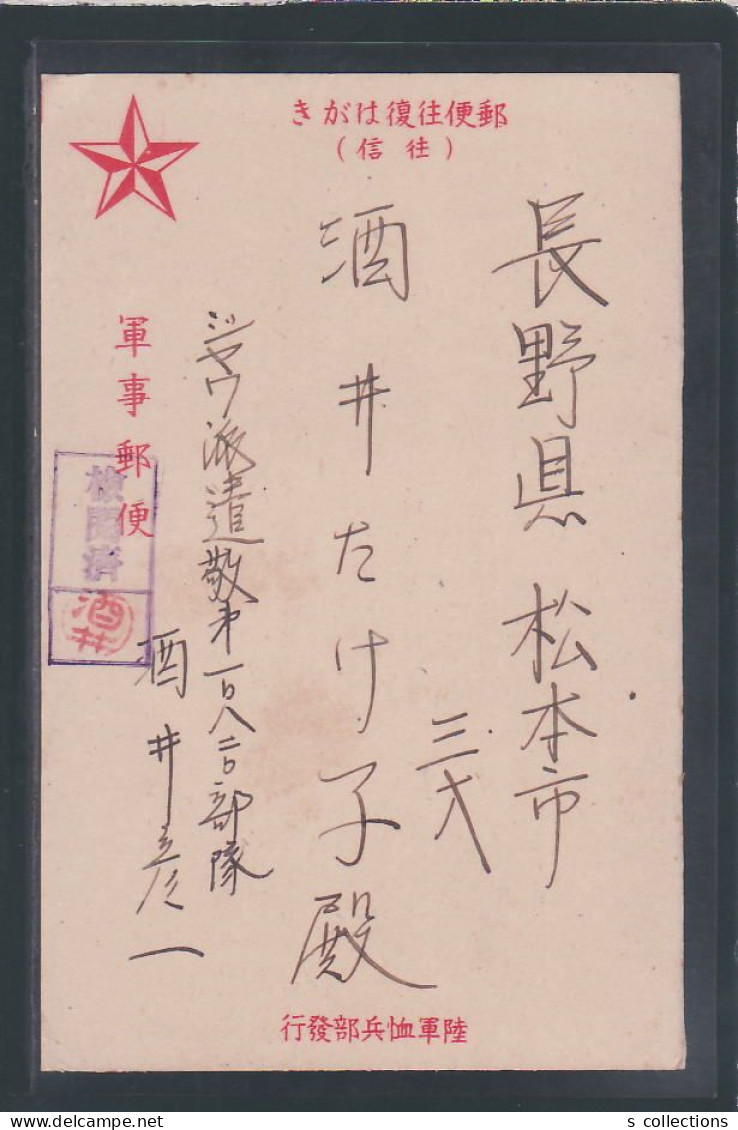 郵便往復はがき
（往信）
長野県松本市
三才
酒井たけ子殿
ジヤワ派遣敬第一〇八二〇部隊
酒井彦一
軍事郵便
検閲済
酒井
陸軍恤兵部發行
s collections